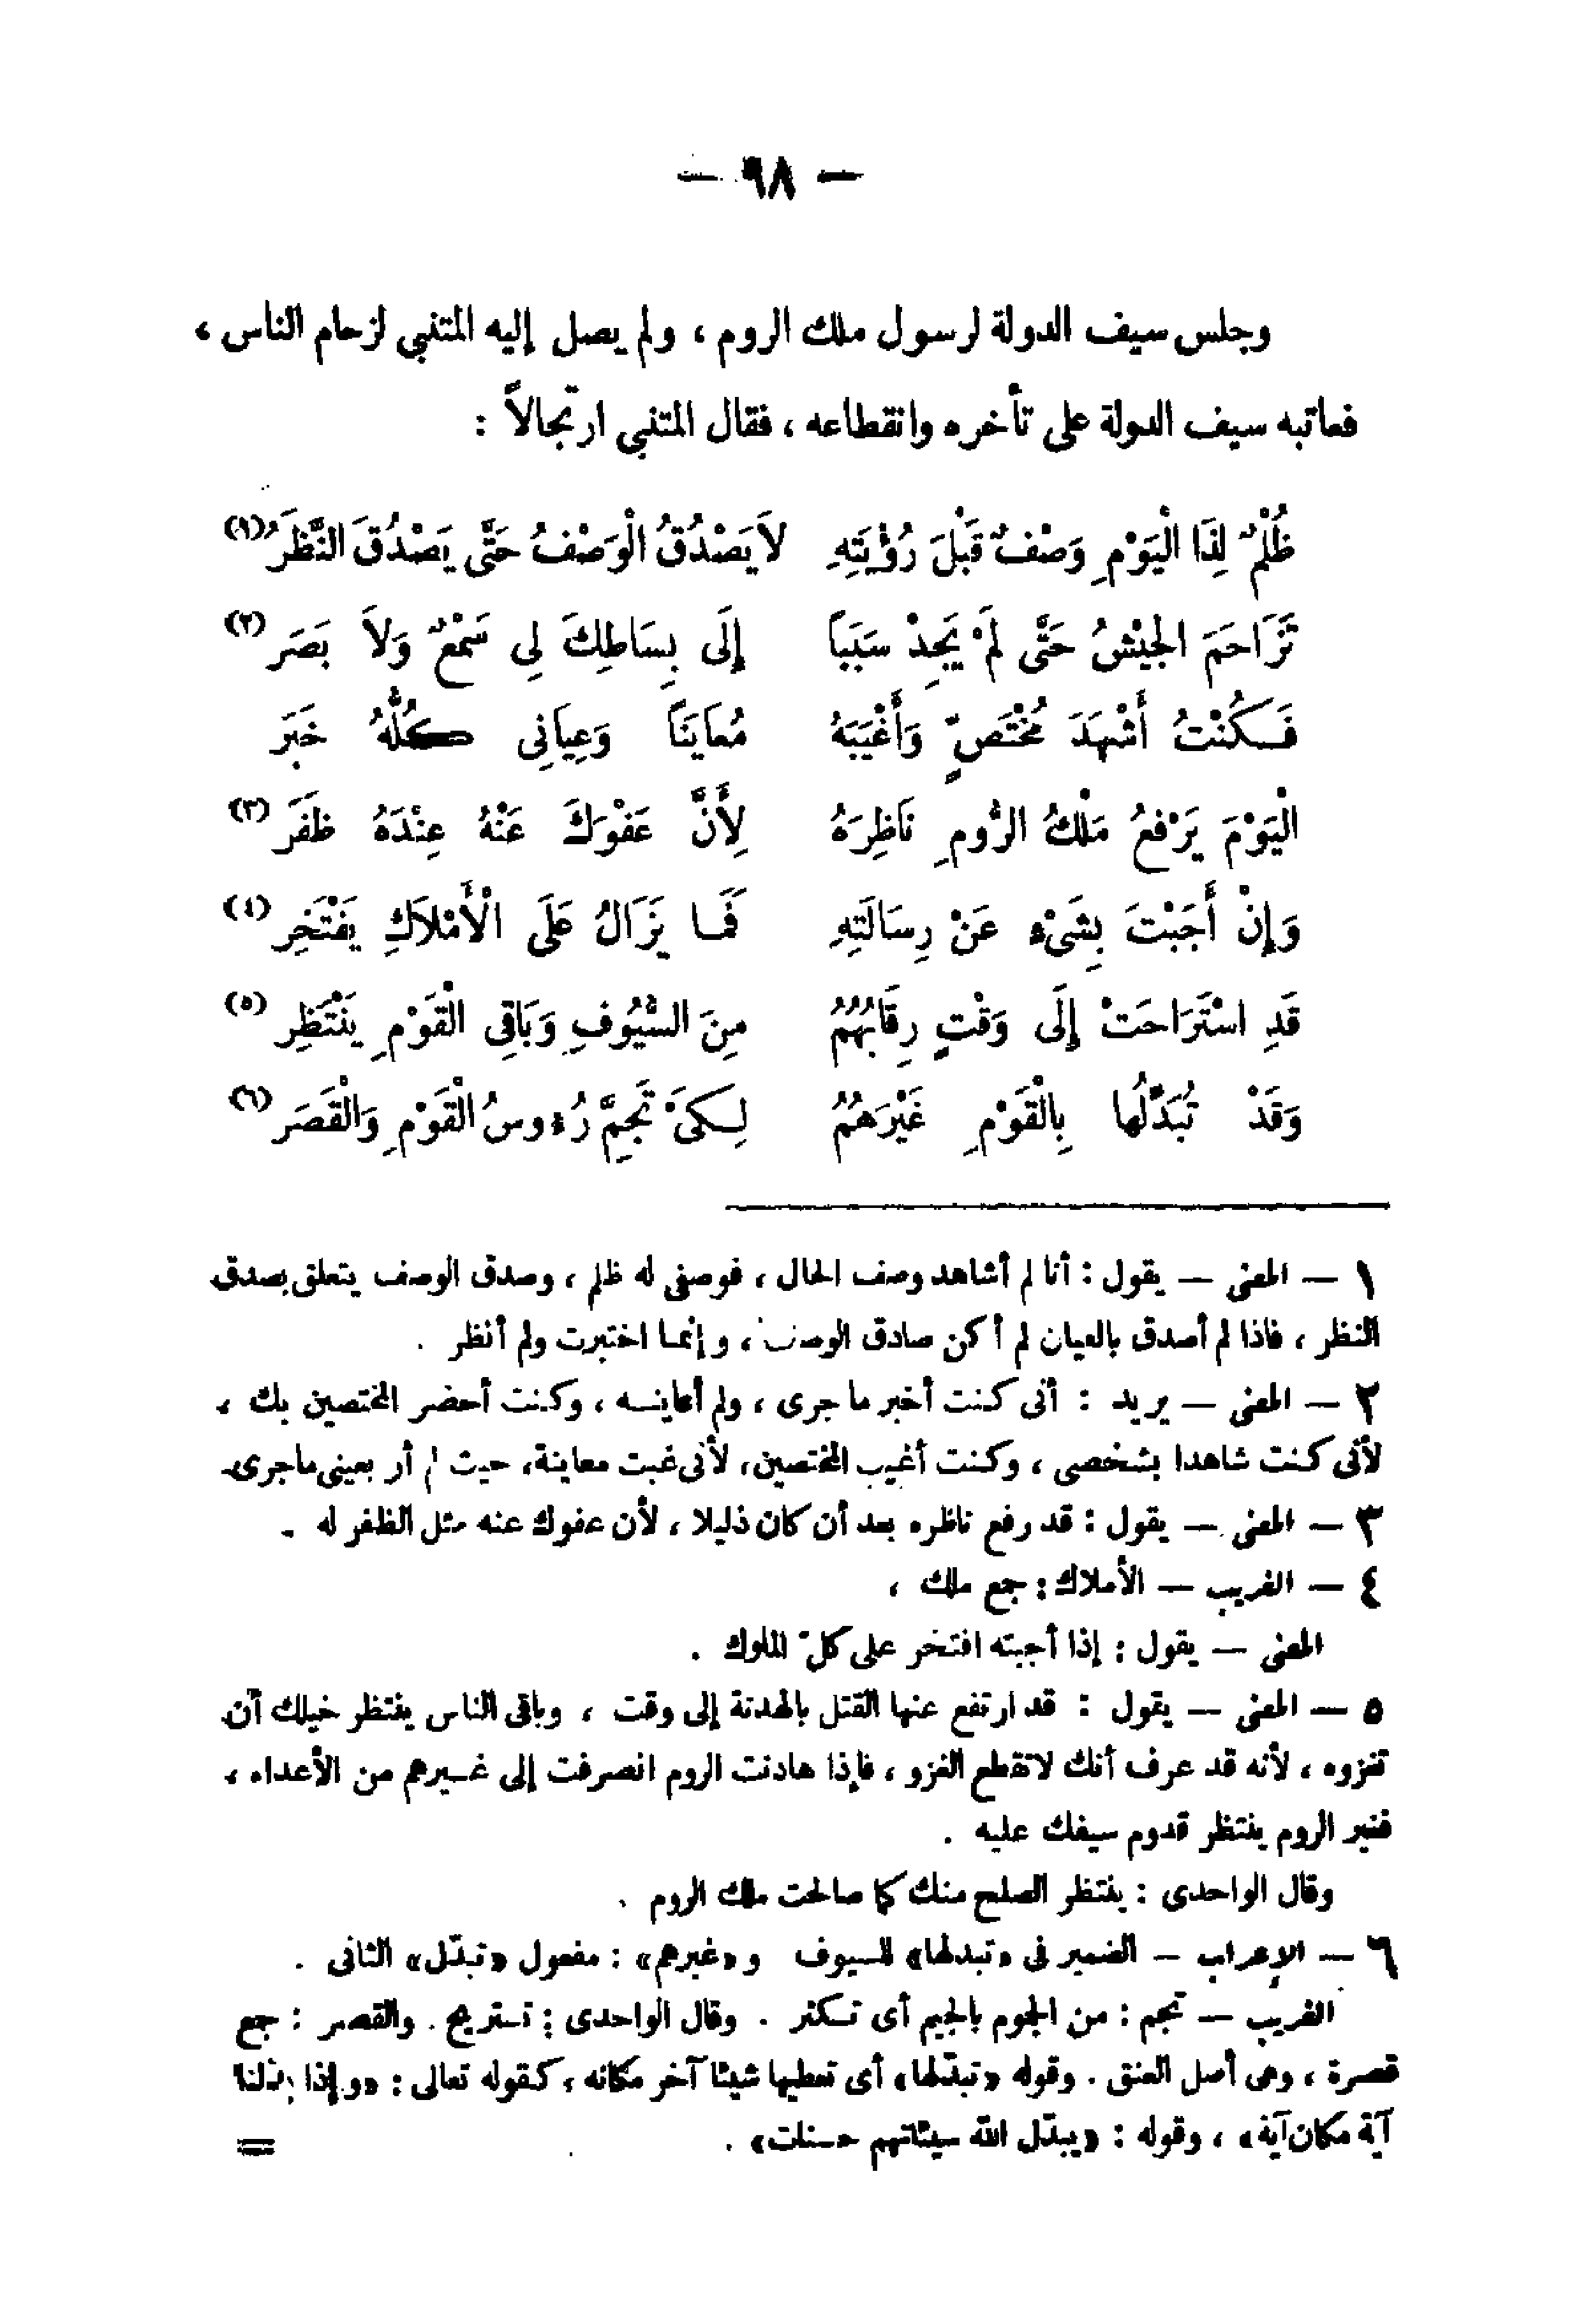 — ٩٨ —
وجلس سيف الدولة لرسول ملك الروم ، ولم يصل إليه المتنبي لزحام الناس ،
فعاتبه سيف الدولة على تأخره وانقطاعه ، فقال المتنبي ارتجالاً :
ظُلْمٌ لِذَا الْيَوْمِ وَصْفٌ قَبْلَ رُؤْيَتِهِ لاَ يَصْدُقُ الْوَصْفُ حَتَّى يَصْدُقَ النَّظَرُ (١)
تَزَاحَمَ الْجَيْشُ حَتَّى لَمْ يَجِدْ سَبَبًا إِلَى بِسَاطِكَ لِى سَمْعٌ وَلاَ بَصَر (٢)
فَكُنْتُ أَشْهَدَ مُخْتَصٍّ وَأَغْيَبَهُ مُعَايَنًا وَعِيَانِى كُلُّهُ خَبَر
الْيَوْمَ يَرْفَعُ مَلْكُ الرُّومِ نَاظِرَهُ لِأَنَّ عَفْوَكَ عَنْهُ عِنْدَهُ ظَفَر (٣)
وَإِنْ أَجَبْتَ بِشَىْءٍ عَنْ رِسَالَتِهِ فَمَا يَزَالُ عَلَى الْأَمْلاَكِ يَفْتَخِر (٤)
قَدِ اسْتَرَاحَتْ إِلَى وَقْتٍ رِقَابُهُمُ مِنَ السُّيُوفِ وَبَاقِى الْقَوْمِ يَنْتَظِر (٥)
وَقَدْ تُبَدِّلُهَا بِالْقَوْمِ غَيْرَهُمُ لِكَىْ تَجِمَّ رُءوسُ الْقَوْمِ وَالْقَصَر (٦)
١ — المعنى — يقول : أنا لم أشاهد وصف الحال ، فوصفى له ظلم ، وصدق الوصف يتعلق بصدق
النظر ، فاذا لم أصدق بالعيان لم أكن صادق الوصف ، وإنما اختبرت ولم أنظر .
٢ — المعنى — يريد : أنى كنت أخبر ما جرى ، ولم أعاينه ، وكنت أحضر المختصين بك ،
لأنى كنت شاهدا بشخصى ، وكنت أغيب المختصين، لأنى غبت معاينة، حيث لم أر بعينى ماجرى .
٣ — المعنى — يقول : قد رفع ناظره بعد أن كان ذليلا ، لأن عفوك عنه مثل الظفر له .
٤ — الغريب — الأملاك : جمع ملك ،
المعنى — يقول : إذا أجبته افتخر على كلّ الملوك .
٥ — المعنى — يقول : قد ارتفع عنها القتل بالهدنة إلى وقت ، وباقى الناس ينتظر خيلك أن
تغزوه ، لأنه قد عرف أنك لاتقطع الغزو ، فإذا هادنت الروم انصرفت إلى غيرهم من الأعداء ،
فغير الروم ينتظر قدوم سيفك عليه .
وقال الواحدى : ينتظر الصلح منك كما صالحت ملك الروم .
٦ — الإعراب — الضمير فى «تبدلها» للسيوف و «غيرهم» : مفعول «تبدّل» الثانى .
الغريب — تجم : من الجموم بالجيم أى تكثر . وقال الواحدى : تستريح . والقصر : جمع
قصرة ، وهى أصل العنق . وقوله «تبدّلها» أى تعطيها شيئا آخر مكانه ، كقوله تعالى : «وإذا بدّلنا
آية مكان آية» ، وقوله : «يبدّل الله سيئاتهم حسنات» .
=